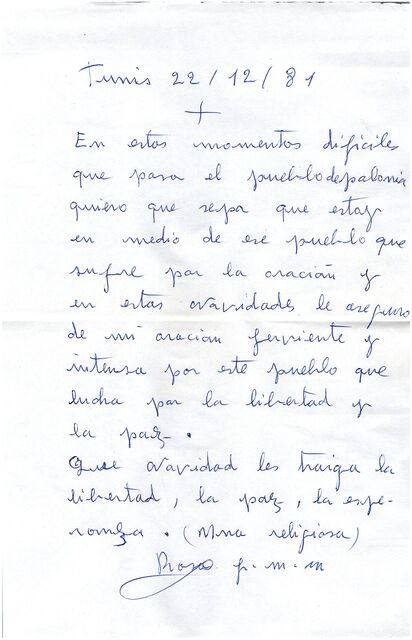 Tunis 22/12/81
+
En estos momentos difíciles
que pasa el pueblo de palonia
quiero que sepa que estoy
en medio de ese pueblo que
sufre por la oración y
en estas navidades le aseguro
de mi oración ferviente y
intensa por este pueblo que
lucha por la libertad y
la paz.
Que navidad les traiga la
libertad, la paz, la espe-
ranza. (Una religiosa)
Rosa f.m.m